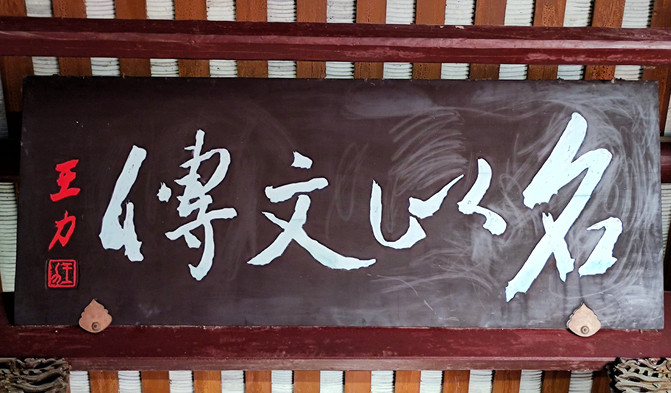 名以文傳
王力